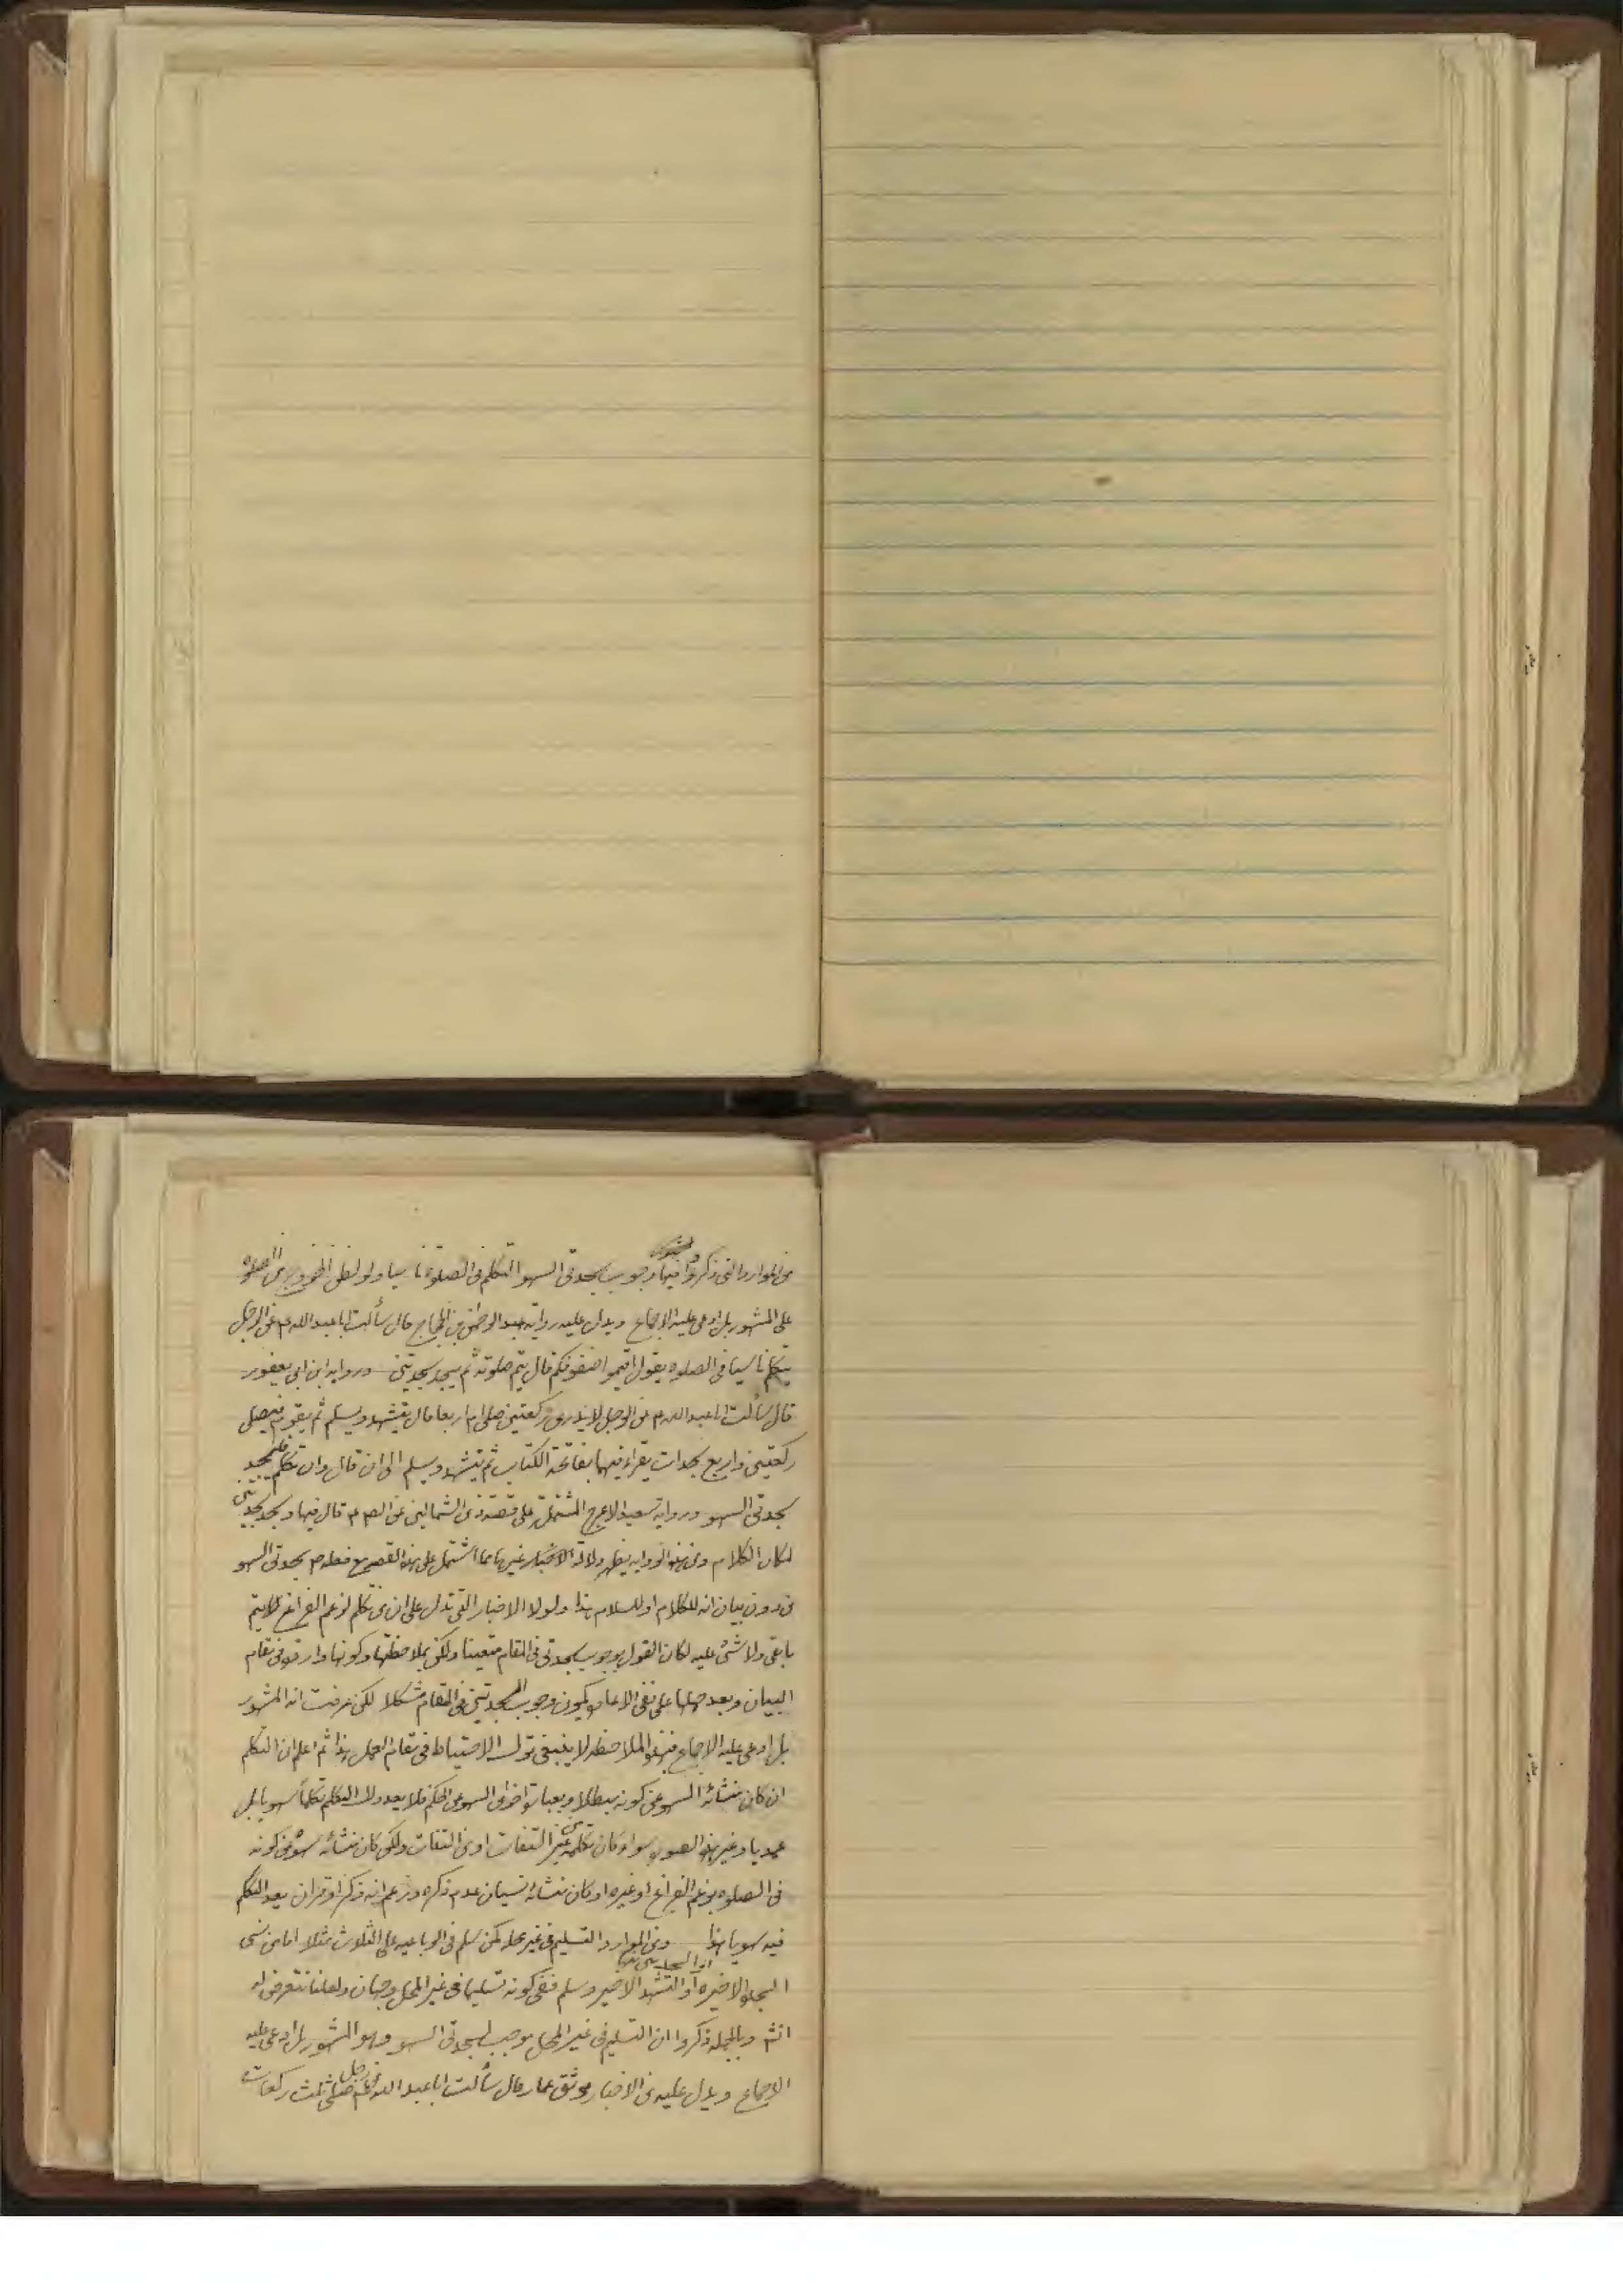 من الموارد التى ذكروا فيها وجوب سجدتى السهو التكلم فى الصلوة ناسيا ولو لظن الخروج من الصلوه
على المشهور بل ادعى عليه الاجماع ويدل عليه رواية عبد الرحمن بن الحجاج قال سألت ابا عبد الله ع عن الرجل
يتكلم ناسيا فى الصلوه يقول اقيموا صفوفكم قال يتم صلوته ثم يسجد سجدتين ورواية ابن ابى يعفور
قال سألت ابا عبد الله ع عن الرجل لا يدرى ركعتين صلى ام اربعا قال يتشهد ويسلم ثم يقوم فيصلى
ركعتين واربع سجدات يقراء فيهما بفاتحة الكتاب ثم يتشهد ويسلم الى ان قال وان تكلم فليسجد
سجدتى السهو ورواية سعيد الاعرج المشتملة على قصة ذى الشمالين عن الص ع قال فيها وسجد سجدتين
لمكان الكلام ومن هذه الروايه يظهر دلالة الاخبار غيرها مما اشتمل على هذه القصه مع فعله ص سجدتى السهو
من دون بيان انه للكلام او للسلام هذا ولولا الاخبار التى تدل على ان من تكلم لزعم الفراغ يتم
ما بقى ولا شئ عليه لكان القول بوجوب سجدتى فى المقام متعينا ولكن بملاحظتها وكونها واردة فى مقام
البيان وبعد حملها على نفى الاعاده يكون وجوب السجدتين فى المقام مشكلا لكن عرفت انه المشهور
بل ادعى عليه الاجماع فبهذه الملاحظه لا ينبغى ترك الاحتياط فى مقام العمل هذا ثم اعلم ان التكلم
ان كان منشائه السهو عن كونه مبطلا وبعبارة اخرى السهو عن الحكم فلا يعد ذلك التكلم تكلماً سهويا بل
عمديا وغير هذه الصور سواء كان تكلمه من غير التفات او من التفات ولكن كان منشائه سهو عن كونه
فى الصلوه بزعم الفراغ او غيره او كان منشائه نسيان عدم ذكره وزعم انه ذكر او قران يعد التكلم
فيه سهويا هذا ومن الموارد التسليم فى غير محله كمن سلم فى الرباعيه على الثلاث مثلا اما من نسى
السجدة الاخيره او التشهد الاخير وسلم ففى كونه تسليما فى غير المحل وجهان ولعلنا نتعرض له
انشـ وبالجمله ذكروا ان التسليم فى غير المحل موجب لسجدتى السهو وهو المشهور بل ادعى عليه
الاجماع ويدل عليه من الاخبار موثق عمار قال سألت ابا عبد الله ع عن رجل صلى ثلث ركعات